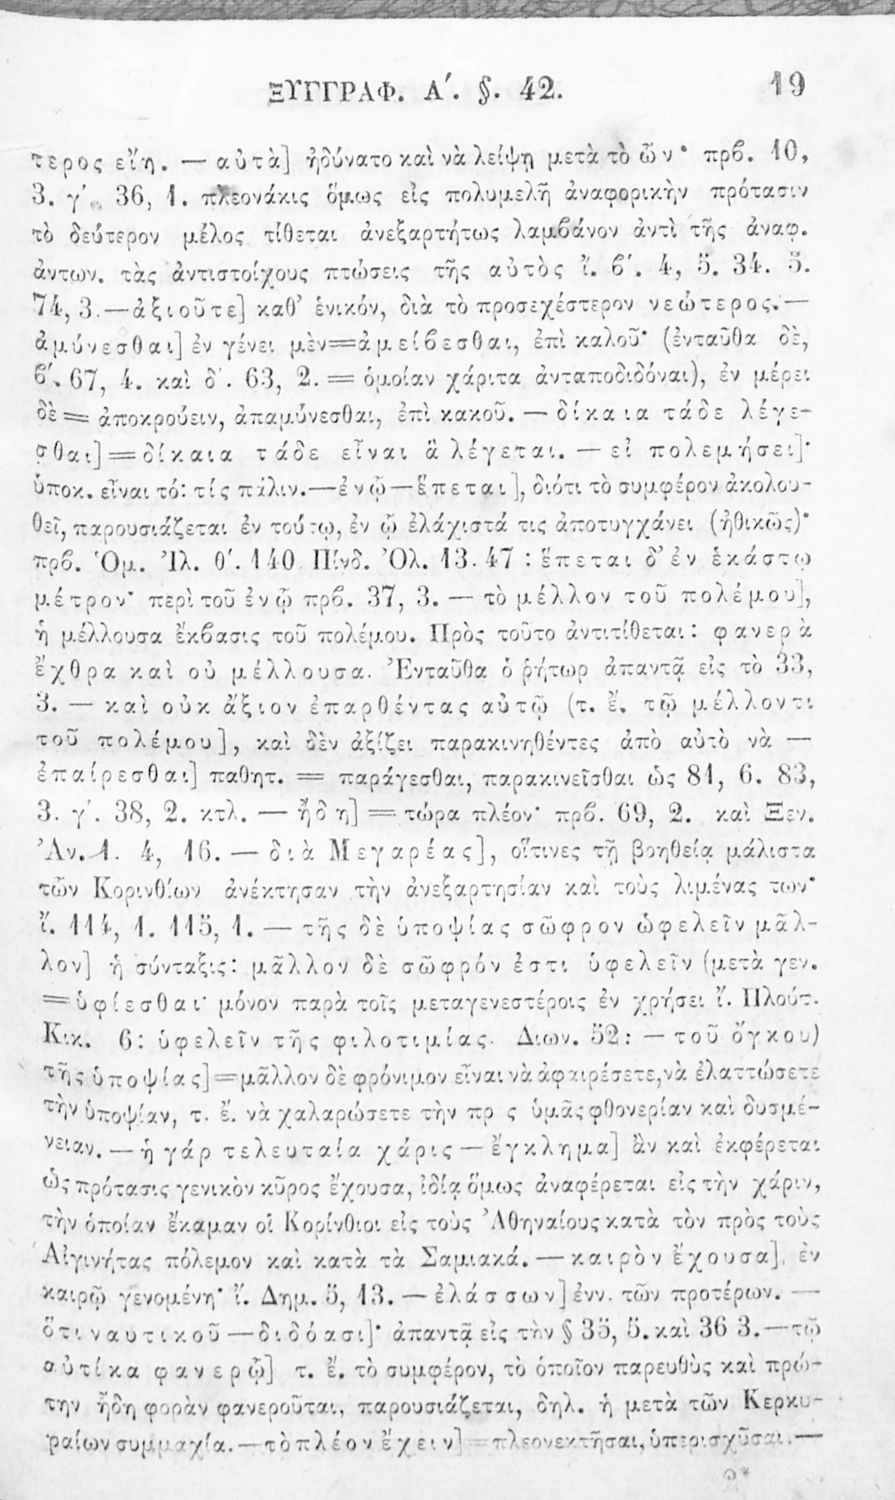 ΞΥΓΓΡΑΦ. Α΄. §. 42. 19
τερος εἴη. — αὐτὰ] ἠδύνατο καὶ νὰ λείψῃ μετὰ τὸ ὧν· πρβ. 10,
3. γ΄. 36, 1. πλεονάκις ὅμως εἰς πολυμελῆ ἀναφορικὴν πρότασιν
τὸ δεύτερον μέλος τίθεται ἀνεξαρτήτως λαμβάνον ἀντὶ τῆς ἀναφ.
ἀντων. τὰς ἀντιστοίχους πτώσεις τῆς αὐτὸς ἴ. β΄. 4, 5. 34. 5.
74, 3.—ἀξιοῦτε] καθ’ ἑνικόν, διὰ τὸ προσεχέστερον νεώτερος.—
ἀμύνεσθαι] ἐν γένει μὲν=ἀμείβεσθαι, ἐπὶ καλοῦ· (ἐνταῦθα δὲ,
β΄. 67, 4. καὶ δ΄. 63, 2. = ὁμοίαν χάριτα ἀνταποδιδόναι), ἐν μέρει
δὲ = ἀποκρούειν, ἀπαμύνεσθαι, ἐπὶ κακοῦ. — δίκαια τάδε λέγε-
σθαι] = δίκαια τάδε εἶναι ἃ λέγεται. — εἰ πολεμήσει]·
ὑποκ. εἶναι τό: τίς πάλιν.—ἐν ᾧ—ἕπεται], διότι τὸ συμφέρον ἀκολου-
θεῖ, παρουσιάζεται ἐν τούτῳ, ἐν ᾧ ἐλάχιστά τις ἀποτυγχάνει (ἠθικῶς)·
πρβ. Ὁμ. Ἰλ. θ΄. 140 Πίνδ. Ὀλ. 13. 47 : ἕπεται δ’ ἐν ἑκάστῳ
μέτρον· περὶ τοῦ ἐν ᾧ πρβ. 37, 3. — τὸ μέλλον τοῦ πολέμου],
ἡ μέλλουσα ἔκβασις τοῦ πολέμου. Πρὸς τοῦτο ἀντιτίθεται: φανερὰ
ἔχθρα καὶ οὐ μέλλουσα. Ἐνταῦθα ὁ ῥήτωρ ἀπαντᾷ εἰς τὸ 33,
3. — καὶ οὐκ ἄξιον ἐπαρθέντας αὐτῷ (τ. ἔ. τῷ μέλλοντι
τοῦ πολέμου], καὶ δὲν ἀξίζει παρακινηθέντες ἀπὸ αὐτὸ νὰ —
ἐπαίρεσθαι] παθητ. = παράγεσθαι, παρακινεῖσθαι ὡς 81, 6. 83,
3. γ΄. 38, 2. κτλ. — ἤδη] = τώρα πλέον· πρβ. 69, 2. καὶ Ξεν.
Ἀν. 1. 4, 16. — διὰ Μεγαρέας], οἵτινες τῇ βοηθείᾳ μάλιστα
τῶν Κορινθίων ἀνέκτησαν τὴν ἀνεξαρτησίαν καὶ τοὺς λιμένας των·
ἴ. 114, 1. 115, 1. — τῆς δὲ ὑποψίας σῶφρον ὑφελεῖν μᾶλ-
λον] ἡ σύνταξις: μᾶλλον δὲ σῶφρόν ἐστι ὑφελεῖν (μετὰ γεν.
=ὑφίεσθαι· μόνον παρὰ τοῖς μεταγενεστέροις ἐν χρήσει ἴ. Πλούτ.
Κικ. 6: ὑφελεῖν τῆς φιλοτιμίας. Διων. 52: — τοῦ ὄγκου)
τῆς ὑποψίας]=μᾶλλον δὲ φρόνιμον εἶναι νὰ ἀφαιρέσετε, νὰ ἐλαττώσετε
τὴν ὑποψίαν, τ. ἔ. νὰ χαλαρώσετε τὴν πρ ς ὑμᾶς φθονερίαν καὶ δυσμέ-
νειαν. — ἡ γάρ τελευταία χάρις — ἔγκλημα] ἂν καὶ ἐκφέρεται
ὡς πρότασις γενικὸν κῦρος ἔχουσα, ἰδίᾳ ὅμως ἀναφέρεται εἰς τὴν χάριν,
τὴν ὁποίαν ἔκαμαν οἱ Κορίνθιοι εἰς τοὺς Ἀθηναίους κατὰ τὸν πρὸς τοὺς
Αἰγινήτας πόλεμον καὶ κατὰ τὰ Σαμιακά. — καιρὸν ἔχουσα], ἐν
καιρῷ γενομένη· ἴ. Δημ. 5, 13. — ἐλάσσων] ἐνν. τῶν προτέρων. —
ὅτι ναυτικοῦ — διδόασι]· ἀπαντᾷ εἰς τὴν § 35, 5. καὶ 36 3.—τῷ
αὐτίκα φανερῷ] τ. ἔ. τὸ συμφέρον, τὸ ὁποῖον παρευθὺς καὶ πρώ-
την ἤδη φορὰν φανεροῦται, παρουσιάζεται, δηλ. ἡ μετὰ τῶν Κερκυ-
ραίων συμμαχία.—τὸ πλέον ἔχειν] = πλεονεκτῆσαι, ὑπερισχῦσαι.—
2*